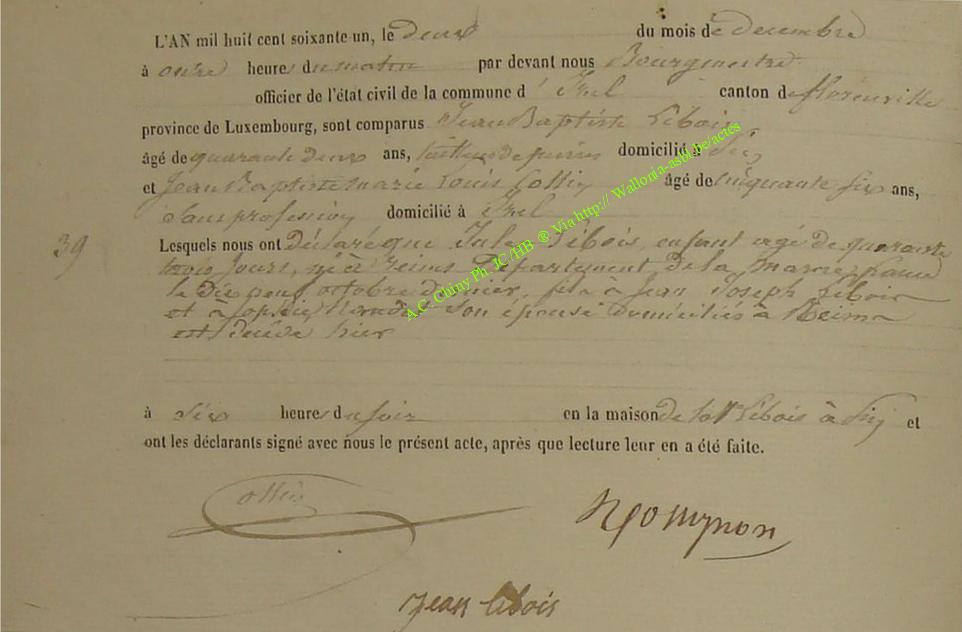 L'AN mil huit cent soixante un, le deux du mois de decembre
à onze heures du matin par devant nous Bourgmestre
officier de l'état civil de la commune d' Izel canton de florenville
province de Luxembourg, sont comparus Jean Baptiste Libois
âgé de quarante deux ans, domicilié à
et Jean Baptiste Marie Louis Collin âgé de cinquante six ans,
Sans profession domicilié à Izel
39 Lesquels nous ont déclaré que Jule Libois, enfant agé de quarante
trois jours, né à Reims Département de la marne, france
le dix neuf octobre dernier, fils a Jean Joseph Libois
et a son épouse Domiciliés à Reims
est décédé hier
à six heures du soir en la maison Libois à et
ont les déclarants signé avec nous le présent acte, après que lecture leur en a été faite.
Jean Libois
A.C. Chiny Ph. JC/HB ® Via http:// Wallonia-asbl.be/actes